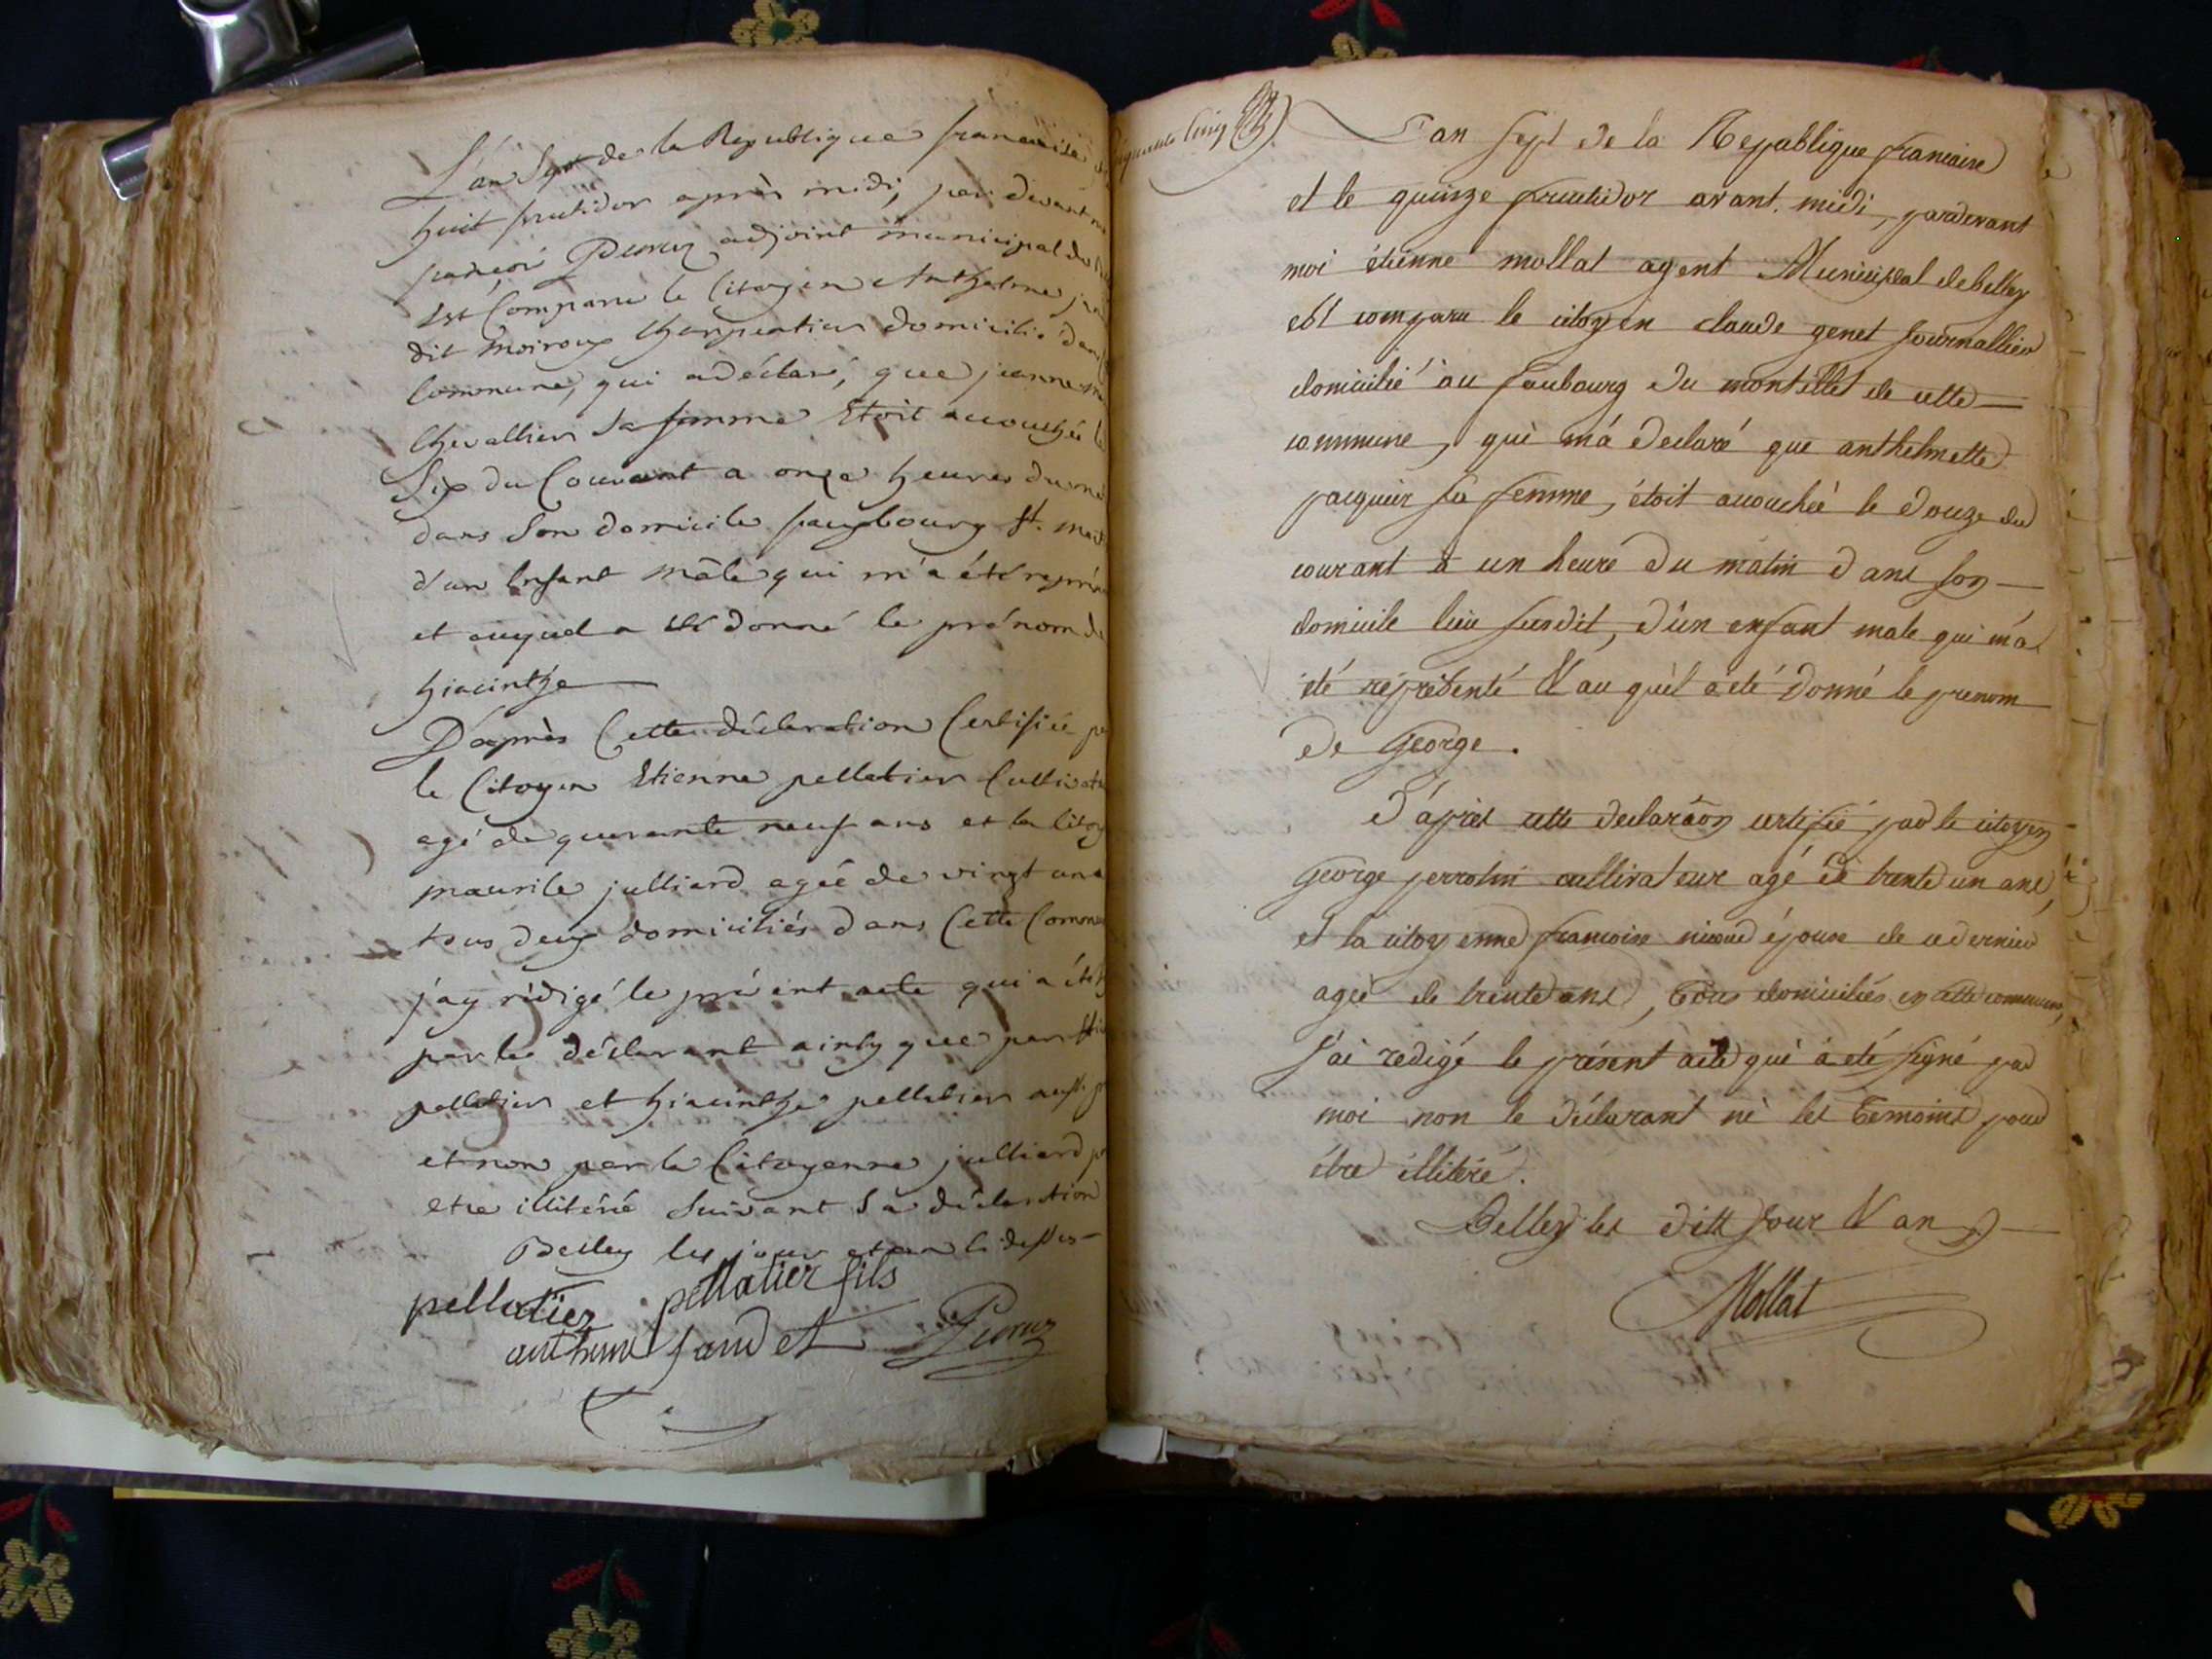 L'an Sept de la Republique francaise
huit fructidor après midi, par devant
françois adjoint municipal de
Est Comparu le Citoyen Anthelme
dit moiroux Charpentier domicilié dans
Commune, qui a déclaré, que jeanne
Chevallier Sa femme Etoit accouchée le
Six du Courant a onze heures du
dans Son domicile fauxbourg St.
d'un Enfant mâle qui m'a été
et auquel a été donné le prénom de
hiacinthe
D'après Cette déclaration Certifiée
le Citoyen Etienne pelletier
agé de quarante neuf ans et la
julliard agée de vingt
tous deux domiciliés dans Cette
j'ay rédigé le présent acte qui a été
par le déclarant ainsy que par
pelletier et hiacinthe pelletier
et non par la Citoyenne julliard
etre illitéré Suivant Sa déclaration
Belley les jour et an
pellatier pellatier fils
cinq
L'an sept de la Republique francaise
et le quinze fructidor avant midi, pardevant
moi étienne mollat agent Municipal de belley
est comparu le citoyen claude genet journallier
domicilié au faubourg du montillet de cette
commune, qui m'a declaré que anthelmette
jacquier sa femme, étoit acouchée le douze du
courant à un heure du matin dans son
domicile lieu susdit, d'un enfant male qui m'a
été réprésenté & au quel a été donné le prenom
de George.
D'après cette declaraõn certifié par le citoyen
George perrotin cultivateur agé de trente un ans,
et la citoyenne francoise épouse de ce dernier
agée de trente ans, tous domiciliés en cette commune,
j'ai redigé le présent acte qui a été signé par
moi non le déclarant ni les temoins pour
être illitéré.
Belley les dits jour & an
Mollat